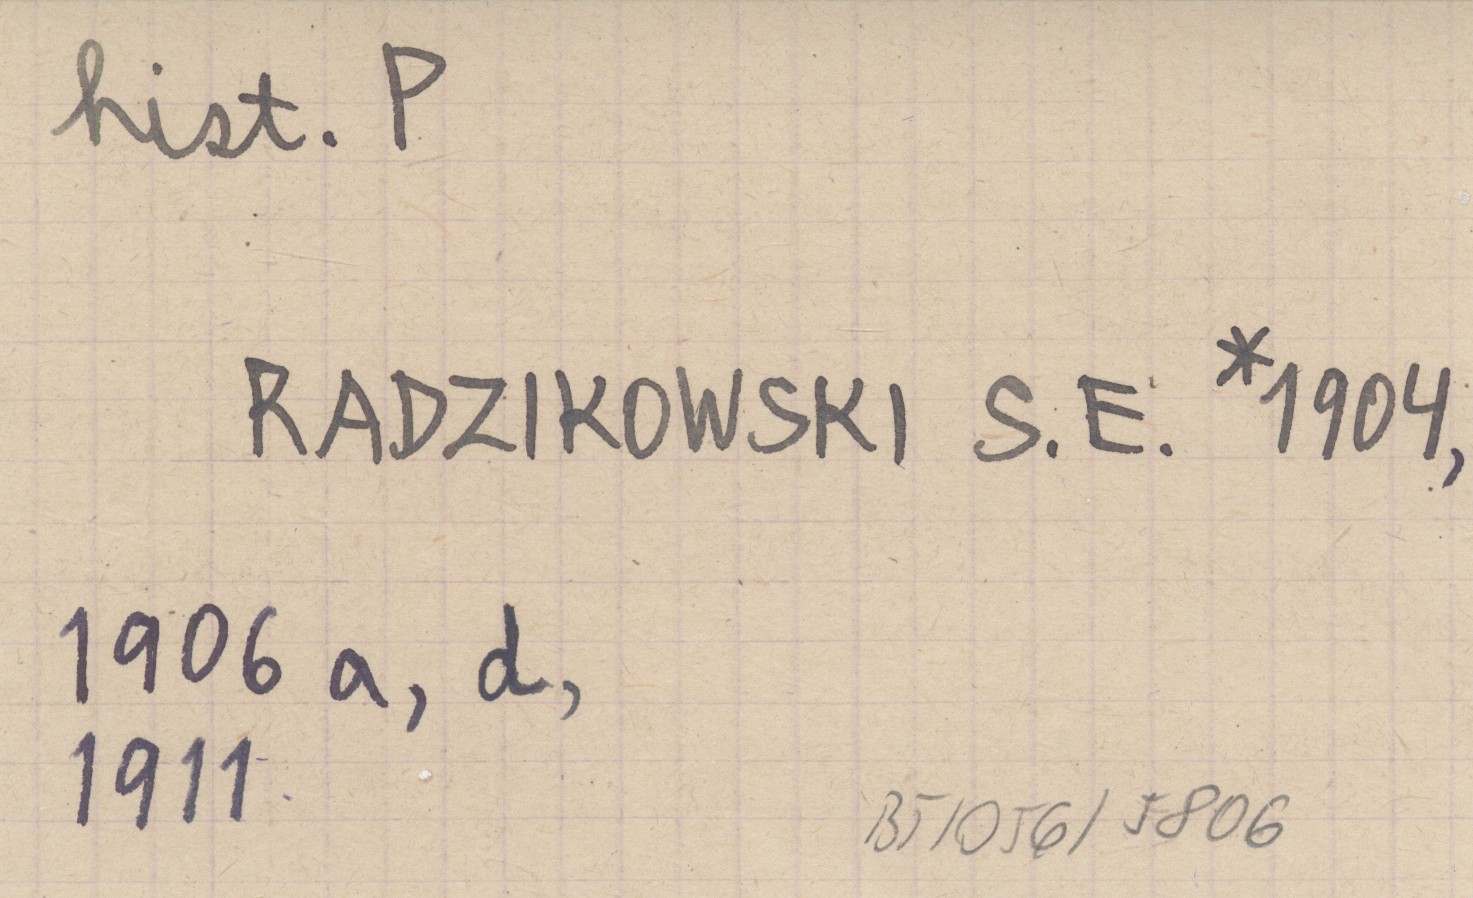 hist. P
RADZIKOWSKI S.E. *1904,
1906 a, d,
1911
B51056/5806